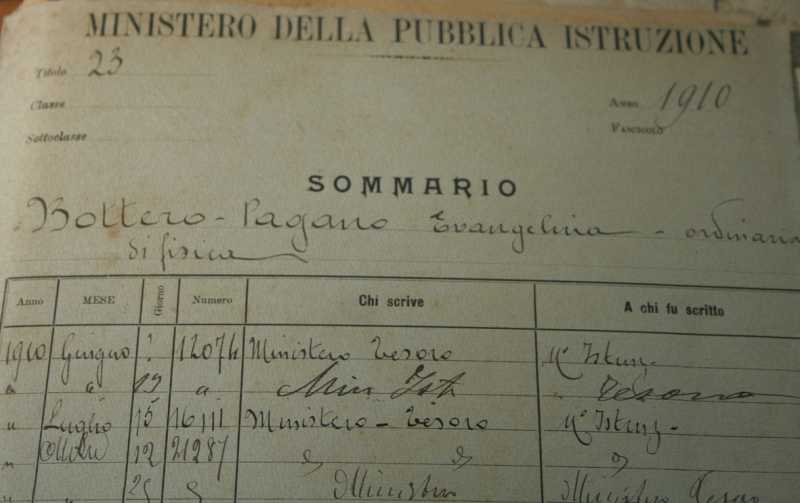 MINISTERO DELLA PUBBLICA ISTRUZIONE
Titolo 23
Classe
Anno 1910
Sottoclasse
Fascicolo
SOMMARIO
Bottero-Pagano Evangelina - ordinaria
di fisica
Anno MESE Giorno Numero Chi scrive A chi fu scritto
1910 Giugno 12074 Ministero Tesoro Mo Istruz.
" " " Min Ist " Tesoro
" Luglio 15 16111 Ministero - Tesoro Mo Istruz -
" 12 21287 " " "
" 25 " Ministero Ministero Tesoro